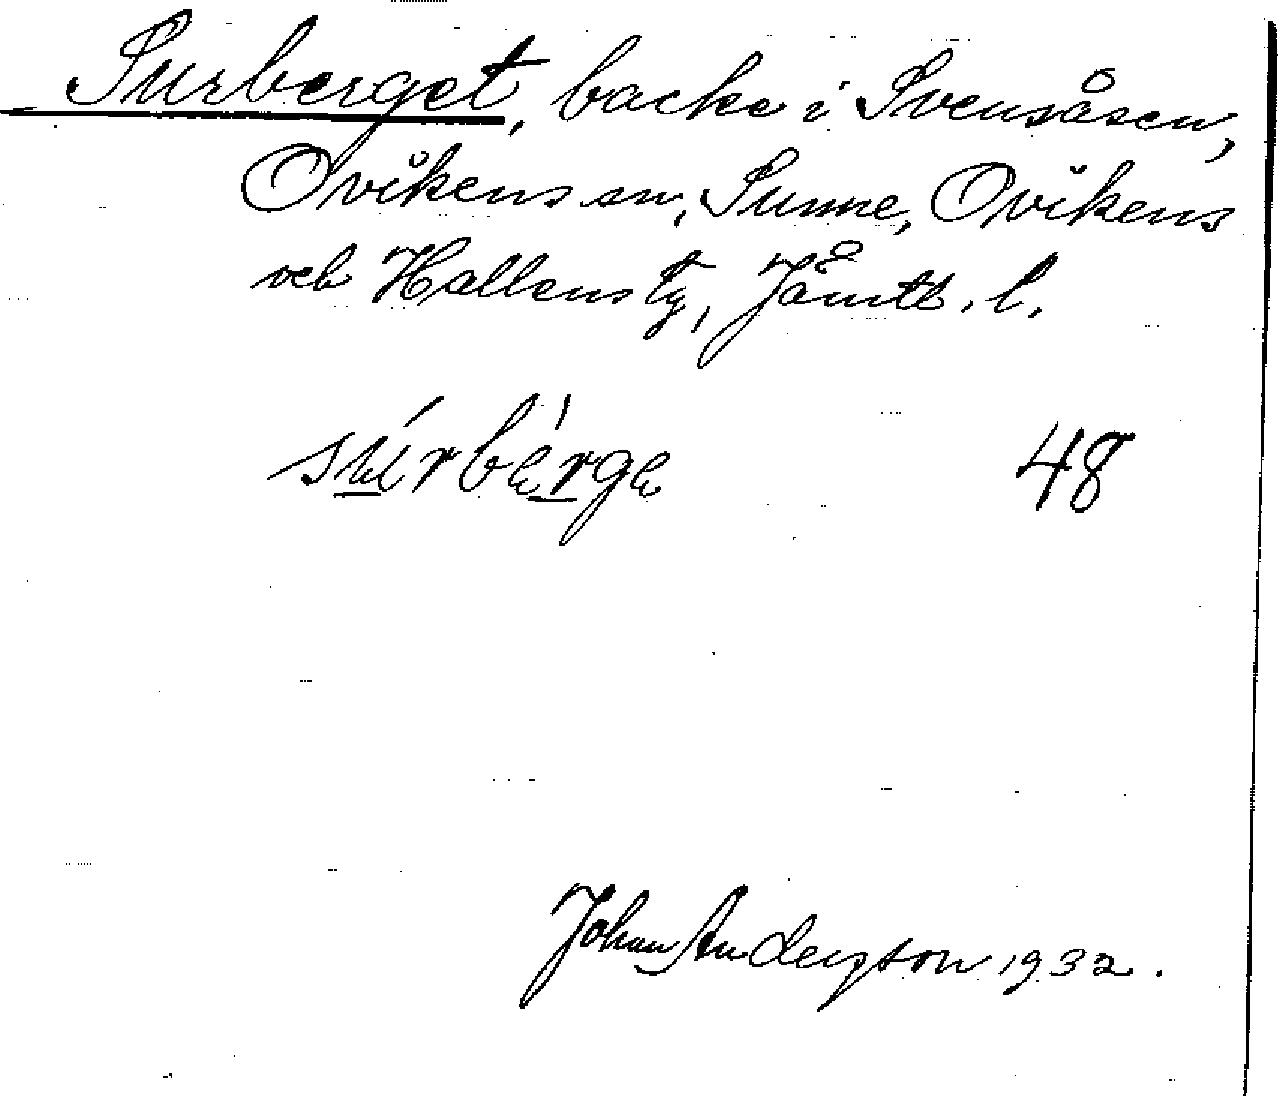 Surberget, backe i Svensåsen,
Ovikens sn, Sunne, Ovikens
och Hallens tg, Jämtl. l.
súrbèrge 48
Johan Anderson 1932.